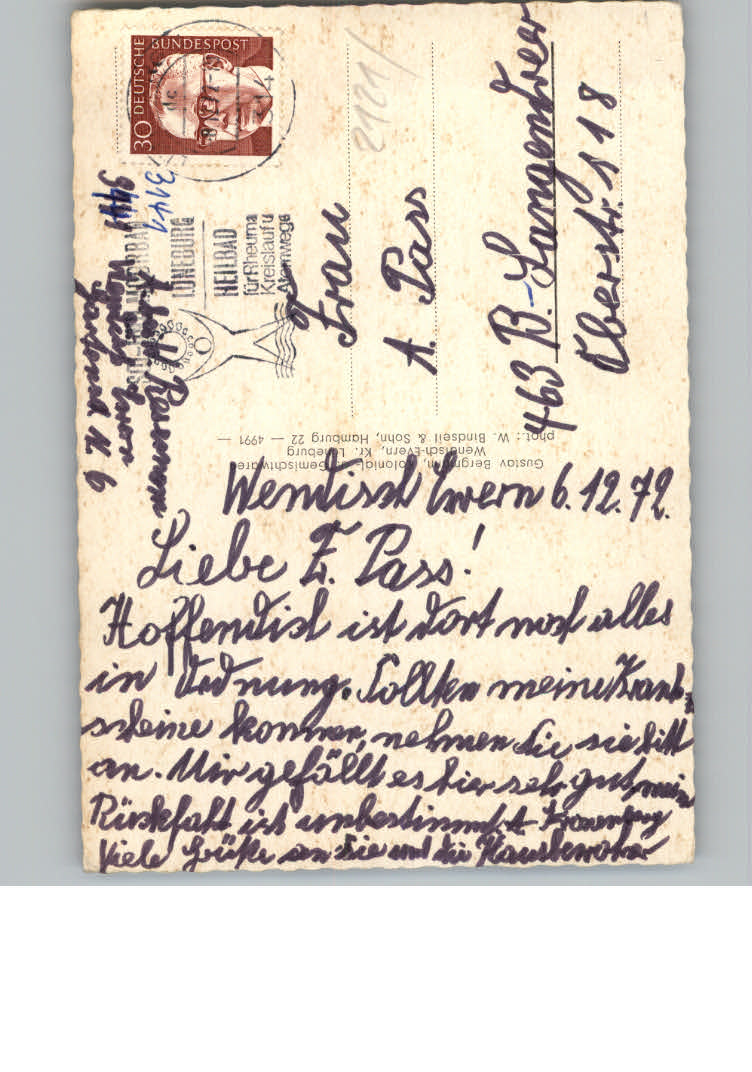 Wendisch Evern 6.12.72.
Liebe F. Pass!
Hoffendlich ist dort noch alles
in Ordnung. Sollten meine Krank-
scheine kommen, nehmen Sie sie bitt
an. Mir gefällt es hier sehr gut, mein
Rückfahrt ist unbestimmt.
Viele Grüße an Sie und die Hausbewohner
Frau
A. Pass
463 B.-Langendreer
Oberstr. 118
2121/
3141
Wendisch Evern
DEUTSCHE BUNDESPOST
30
LÜNEBURG
HEILBAD
für Rheuma
Kreislauf u
Atemwege
Gustav Bergmann, Kolonial- u. Gemischtwaren
Wendisch-Evern, Kr. Lüneburg
phot.: W. Bindseil & Sohn, Hamburg 22 — 4991 —